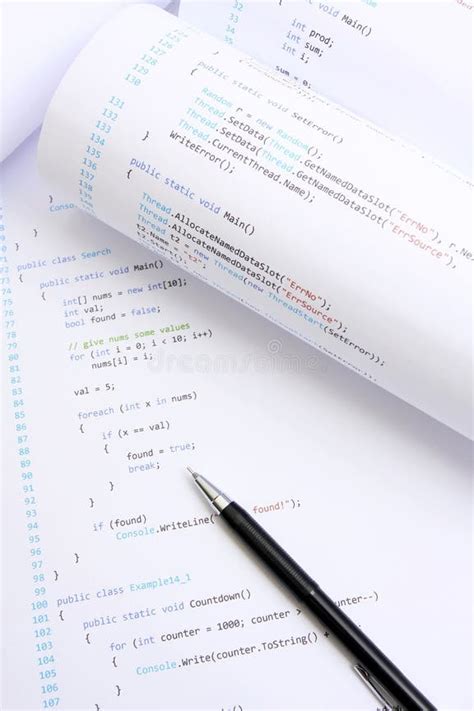 void Main()
int prod;
int sum;
int i;
sum = 0;
129
130
public static void SetError()
131 {
132 Random r = new Random();
133 Thread.SetData(Thread.GetNamedDataSlot("ErrNo"), r.Ne
134 Thread.SetData(Thread.GetNamedDataSlot("ErrSource"),
135 Thread.CurrentThread.Name);
WriteError();
}
public static void Main()
{
Thread.AllocateNamedDataSlot("ErrNo");
Thread.AllocateNamedDataSlot("ErrSource");
Thread t2 = new Thread(new ThreadStart(SetError));
t2.Name = "t2";
t2.Start();
Console.
}
}
72 public class Search
73 {
74 public static void Main()
75 {
76 int[] nums = new int[10];
77 int val;
78 bool found = false;
79
80 // give nums some values
81 for (int i = 0; i < 10; i++)
82 nums[i] = i;
83
84 val = 5;
85
86 foreach (int x in nums)
87 {
88 if (x == val)
89 {
90 found = true;
91 break;
92 }
93 }
94
95 if (found)
96 Console.WriteLine( found!");
97 }
98 }
99
100 public class Example14_1
101 {
102 public static void Countdown()
103 {
104 for (int counter = 1000; counter > counter--)
105 {
106 Console.Write(counter.ToString() +
107 }
108
109
dreamstime